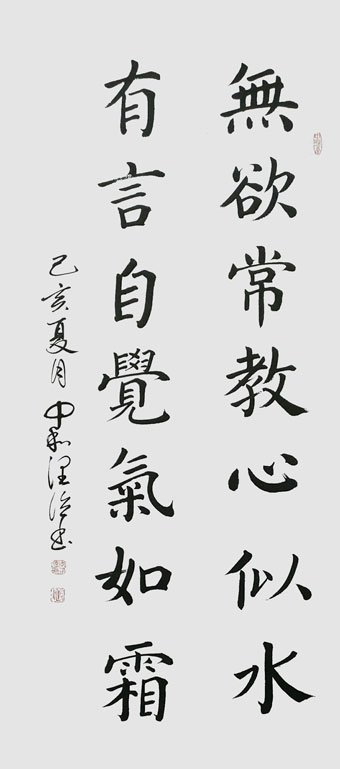 無欲常教心似水
有言自覺氣如霜
己亥夏月中和